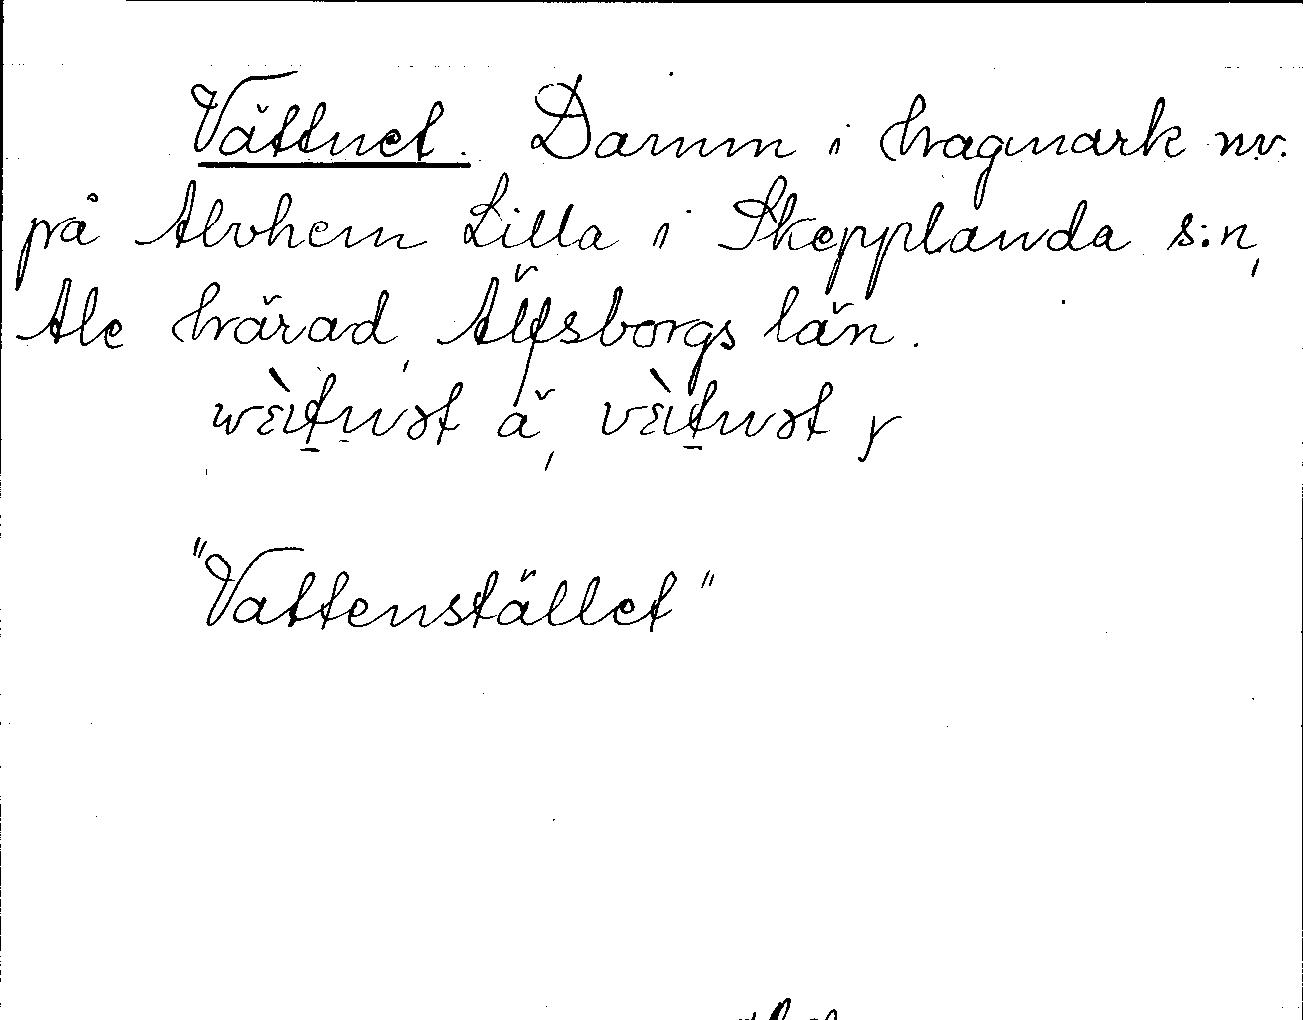 Vättnet. Damm i hagmark nv.
på Alvhem Lilla i Skepplanda s:n,
Ale härad, Älfsborgs län.
wɛ̀itnət ä, vɛ̀itnət y
"Vattenstället"